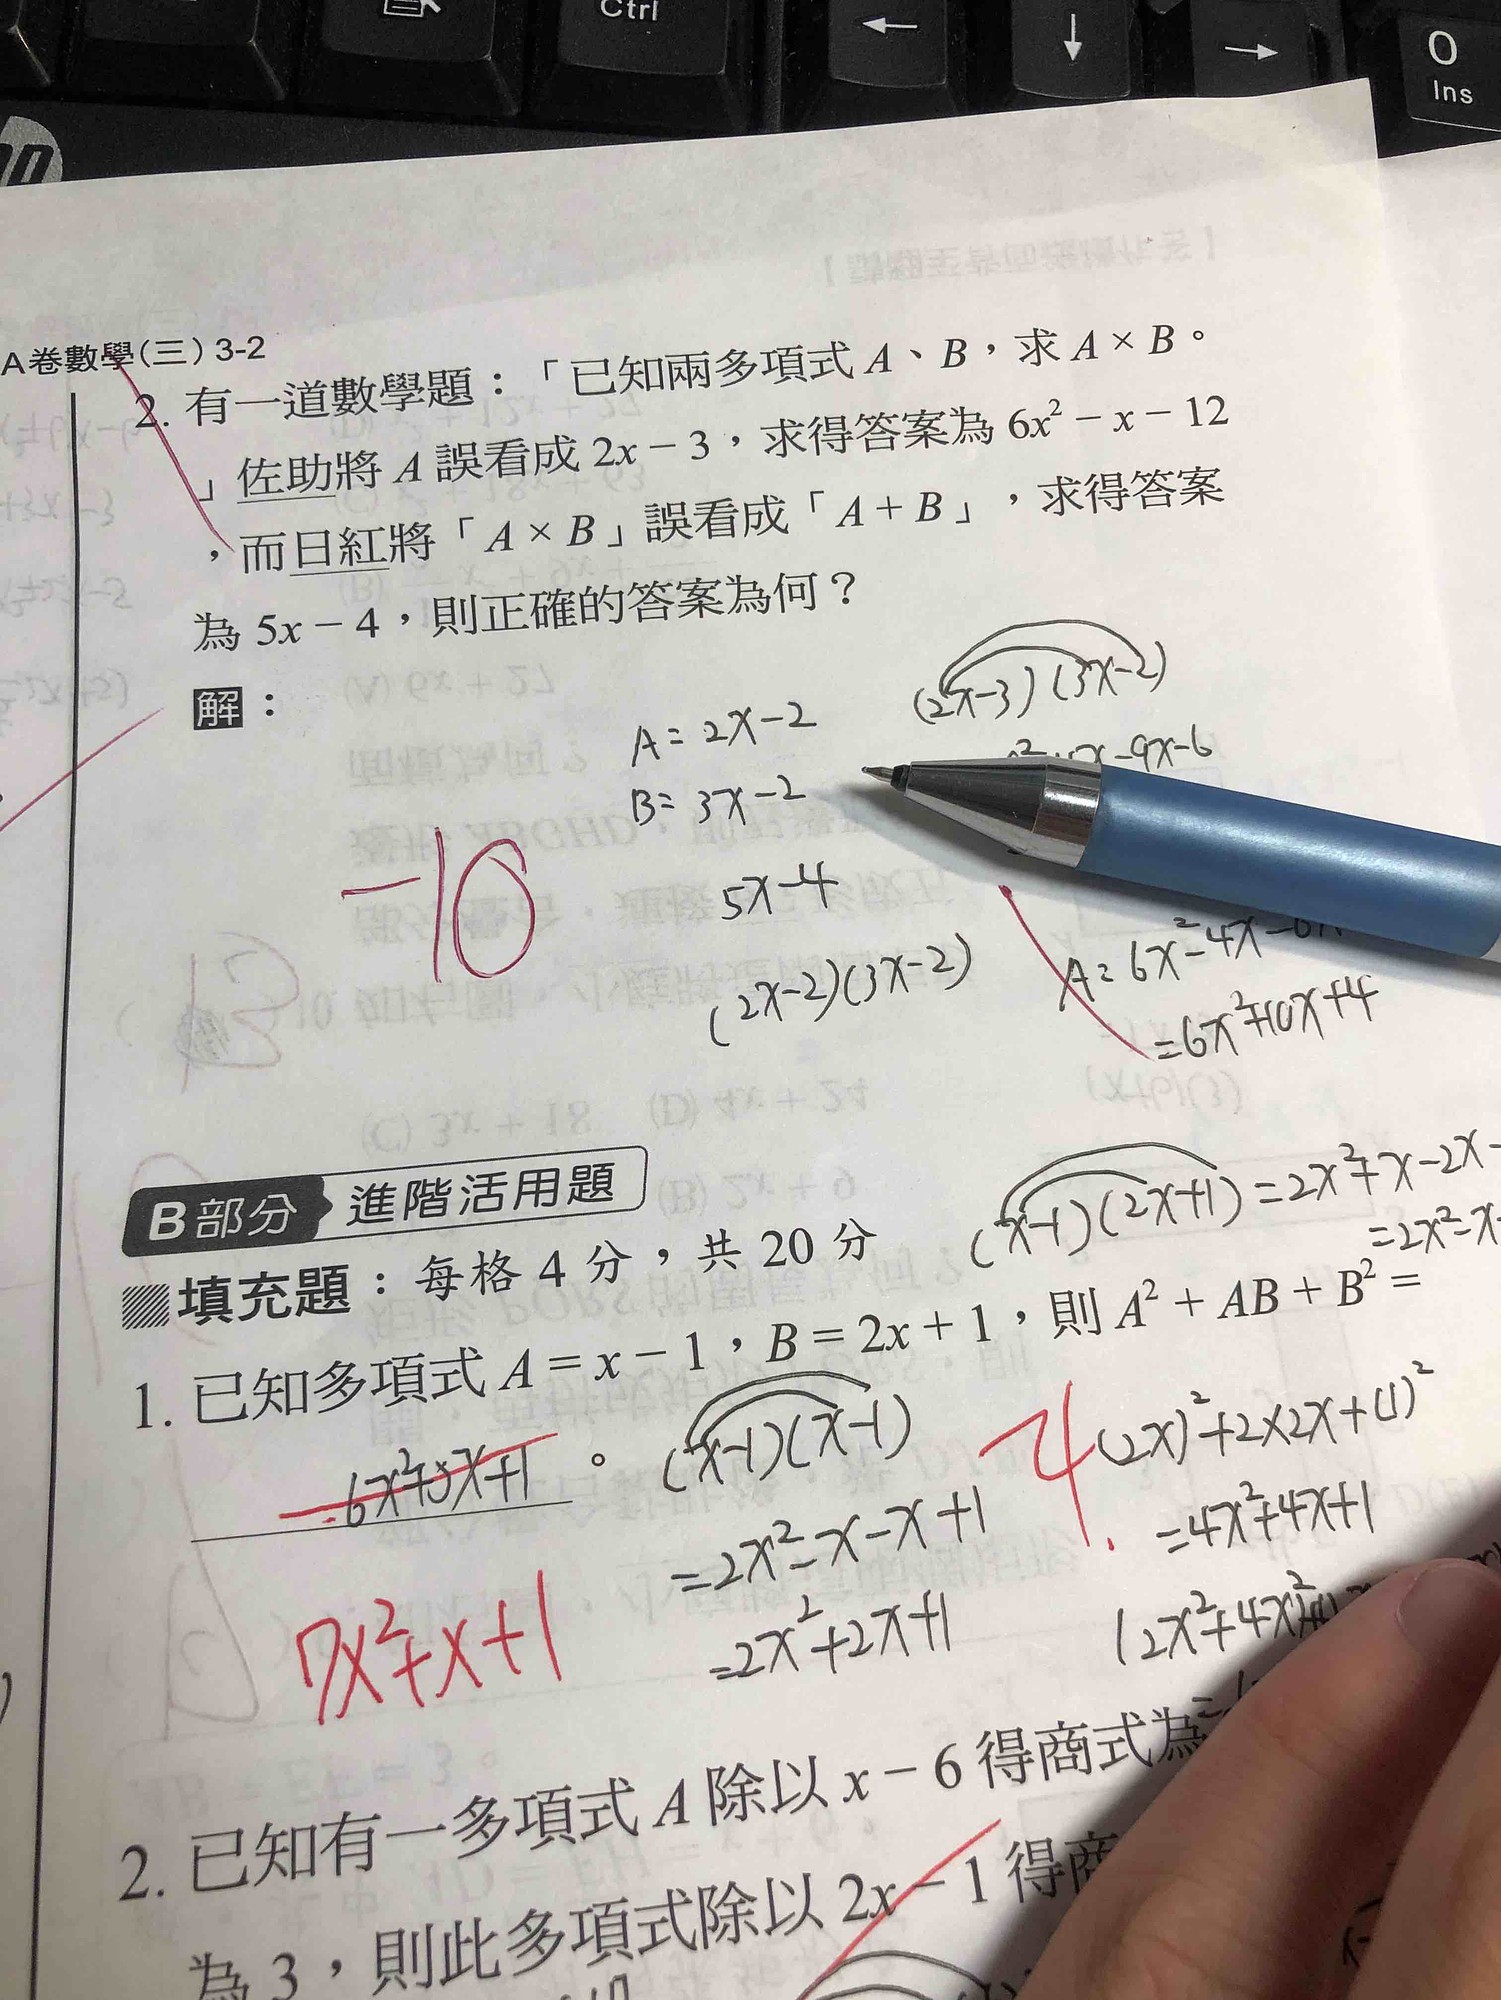 Ctrl
←
↓
→
0
Ins
A卷數學(三) 3-2
2. 有一道數學題：「已知兩多項式 A、B，求 A × B。
」佐助將 A 誤看成 2x − 3，求得答案為 6x² − x − 12
，而日紅將「A × B」誤看成「A + B」，求得答案
為 5x − 4，則正確的答案為何？
解：
A = 2x-2
B = 3x-2
5x-4
(2x-2)(3x-2)
-10
(2x-3)(3x-2)
-9x-6
A = 6x²-4x
= 6x²+10x+4
B部分 進階活用題
填充題：每格 4 分，共 20 分
(x-1)(2x+1) = 2x²+x-2x-
= 2x²-x-
1. 已知多項式 A = x − 1，B = 2x + 1，則 A² + AB + B² =
6x²+5x+1。
7x²+x+1
(x-1)(x-1)
= 2x²-x-x+1
= 2x²+2x+1
-4
(2x)²+2×2x+(1)²
= 4x²+4x+1
(2x²+4x²
2. 已知有一多項式 A 除以 x − 6 得商式為
為 3，則此多項式除以 2x − 1 得商